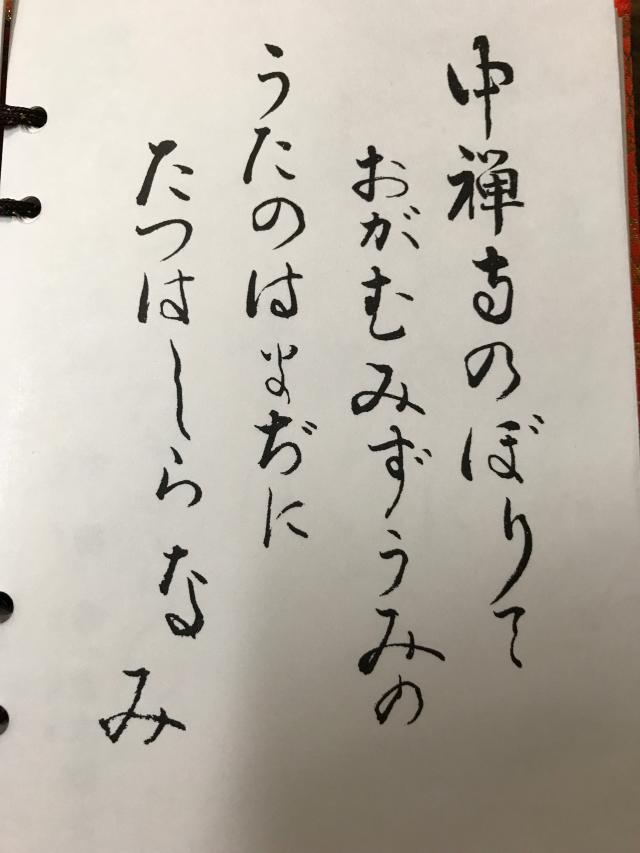 中禅寺のぼりて
おがむみずうみの
うたのはまぢに
たつはしらなみ